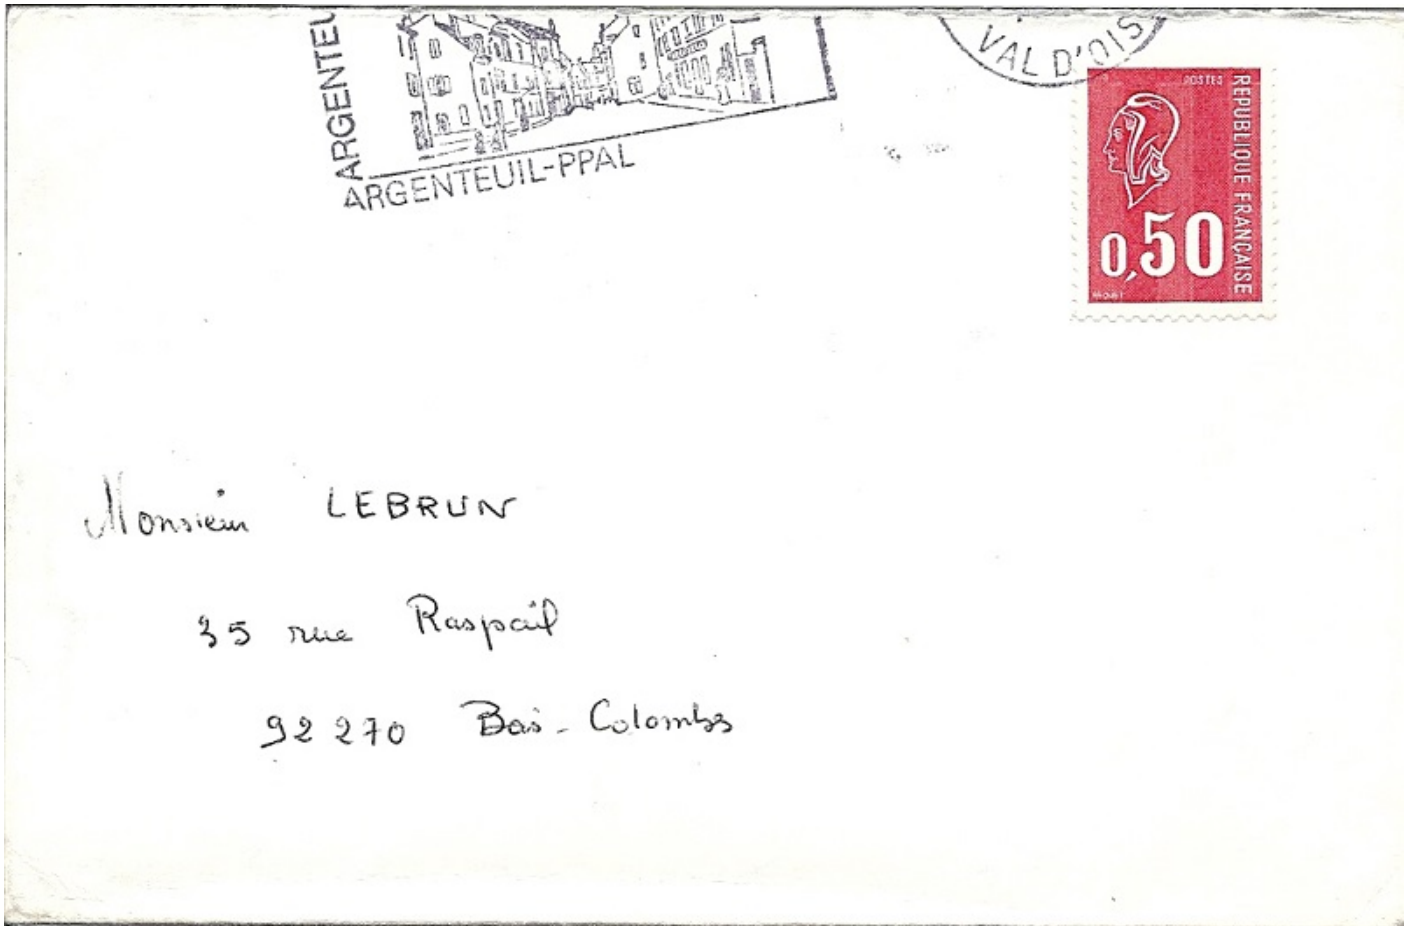 ARGENTEU
ARGENTEUIL-PPAL
VAL D'OIS
POSTES
REPUBLIQUE FRANÇAISE
0,50
Monsieur LEBRUN
35 rue Raspail
92 270 Bois-Colombes